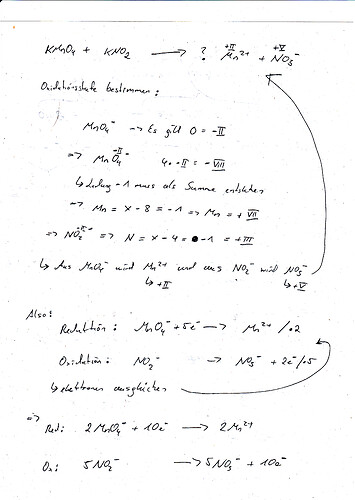 KMnO₄ + KNO₂ ⟶ ? Mn²⁺ (+II) + NO₃⁻ (+V)
Oxidationsstufe bestimmen:
MnO₄⁻ → Es gilt O = -II
=> MnO₄⁻ (-II) 4 · -II = -VIII
↳ Ladung -1 muss als Summe entstehen
→ Mn = x - 8 = -1 => Mn = +VII
=> NO₂⁻ (-II) => N = x - 4 = -1 = +III
↳ Aus MnO₄⁻ wird Mn²⁺ und aus NO₂⁻ wird NO₃⁻
↳ +II ↳ +V
Also:
Reduktion: MnO₄⁻ + 5e⁻ ⟶ Mn²⁺ / · 2
Oxidation: NO₂⁻ → NO₃⁻ + 2e⁻ / · 5
↳ elektronen ausgleichen
=>
Red: 2 MnO₄⁻ + 10e⁻ ⟶ 2 Mn²⁺
Ox: 5 NO₂⁻ ⟶ 5 NO₃⁻ + 10e⁻